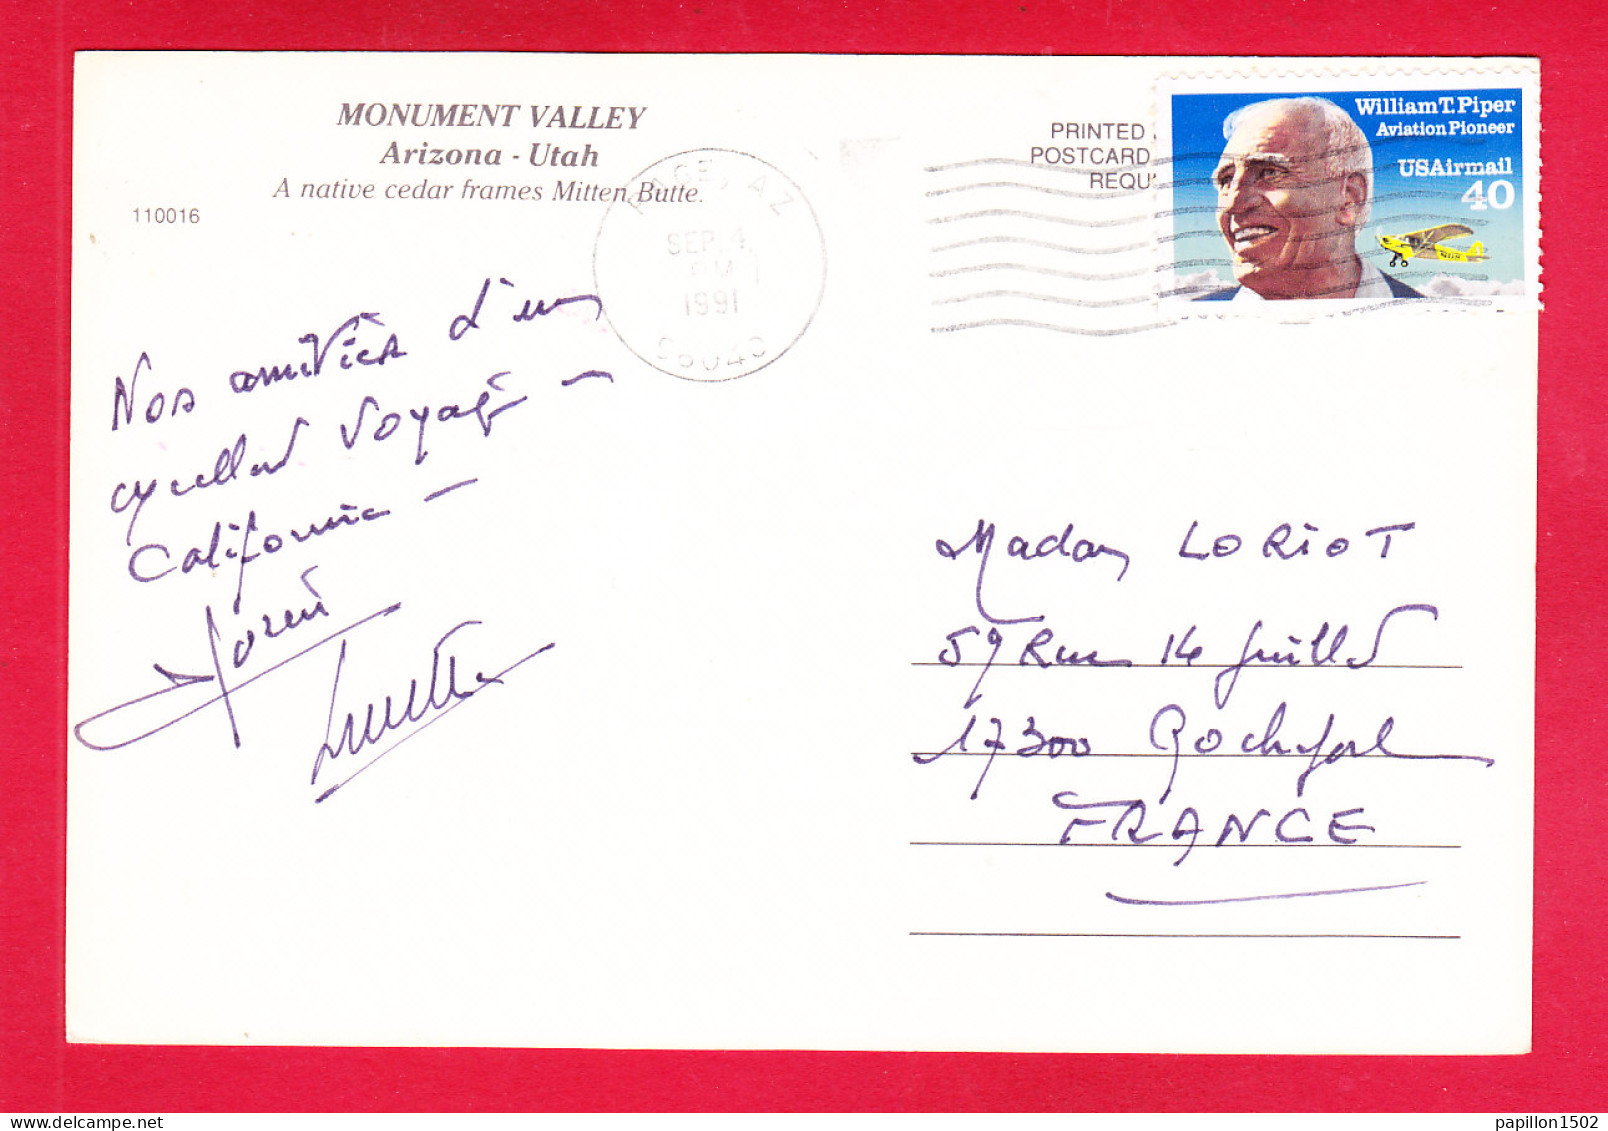 MONUMENT VALLEY
Arizona - Utah
A native cedar frames Mitten Butte.
110016
PAGE, AZ
SEP 4
PM
1991
86040
PRINTED
POSTCARD
REQU
William T. Piper
Aviation Pioneer
USAirmail
40
Nos amitiés d'un
excellent voyage -
California -
Madame LORIOT
59 Rue 14 Juillet
17300 Rochefort
FRANCE
papillon1502